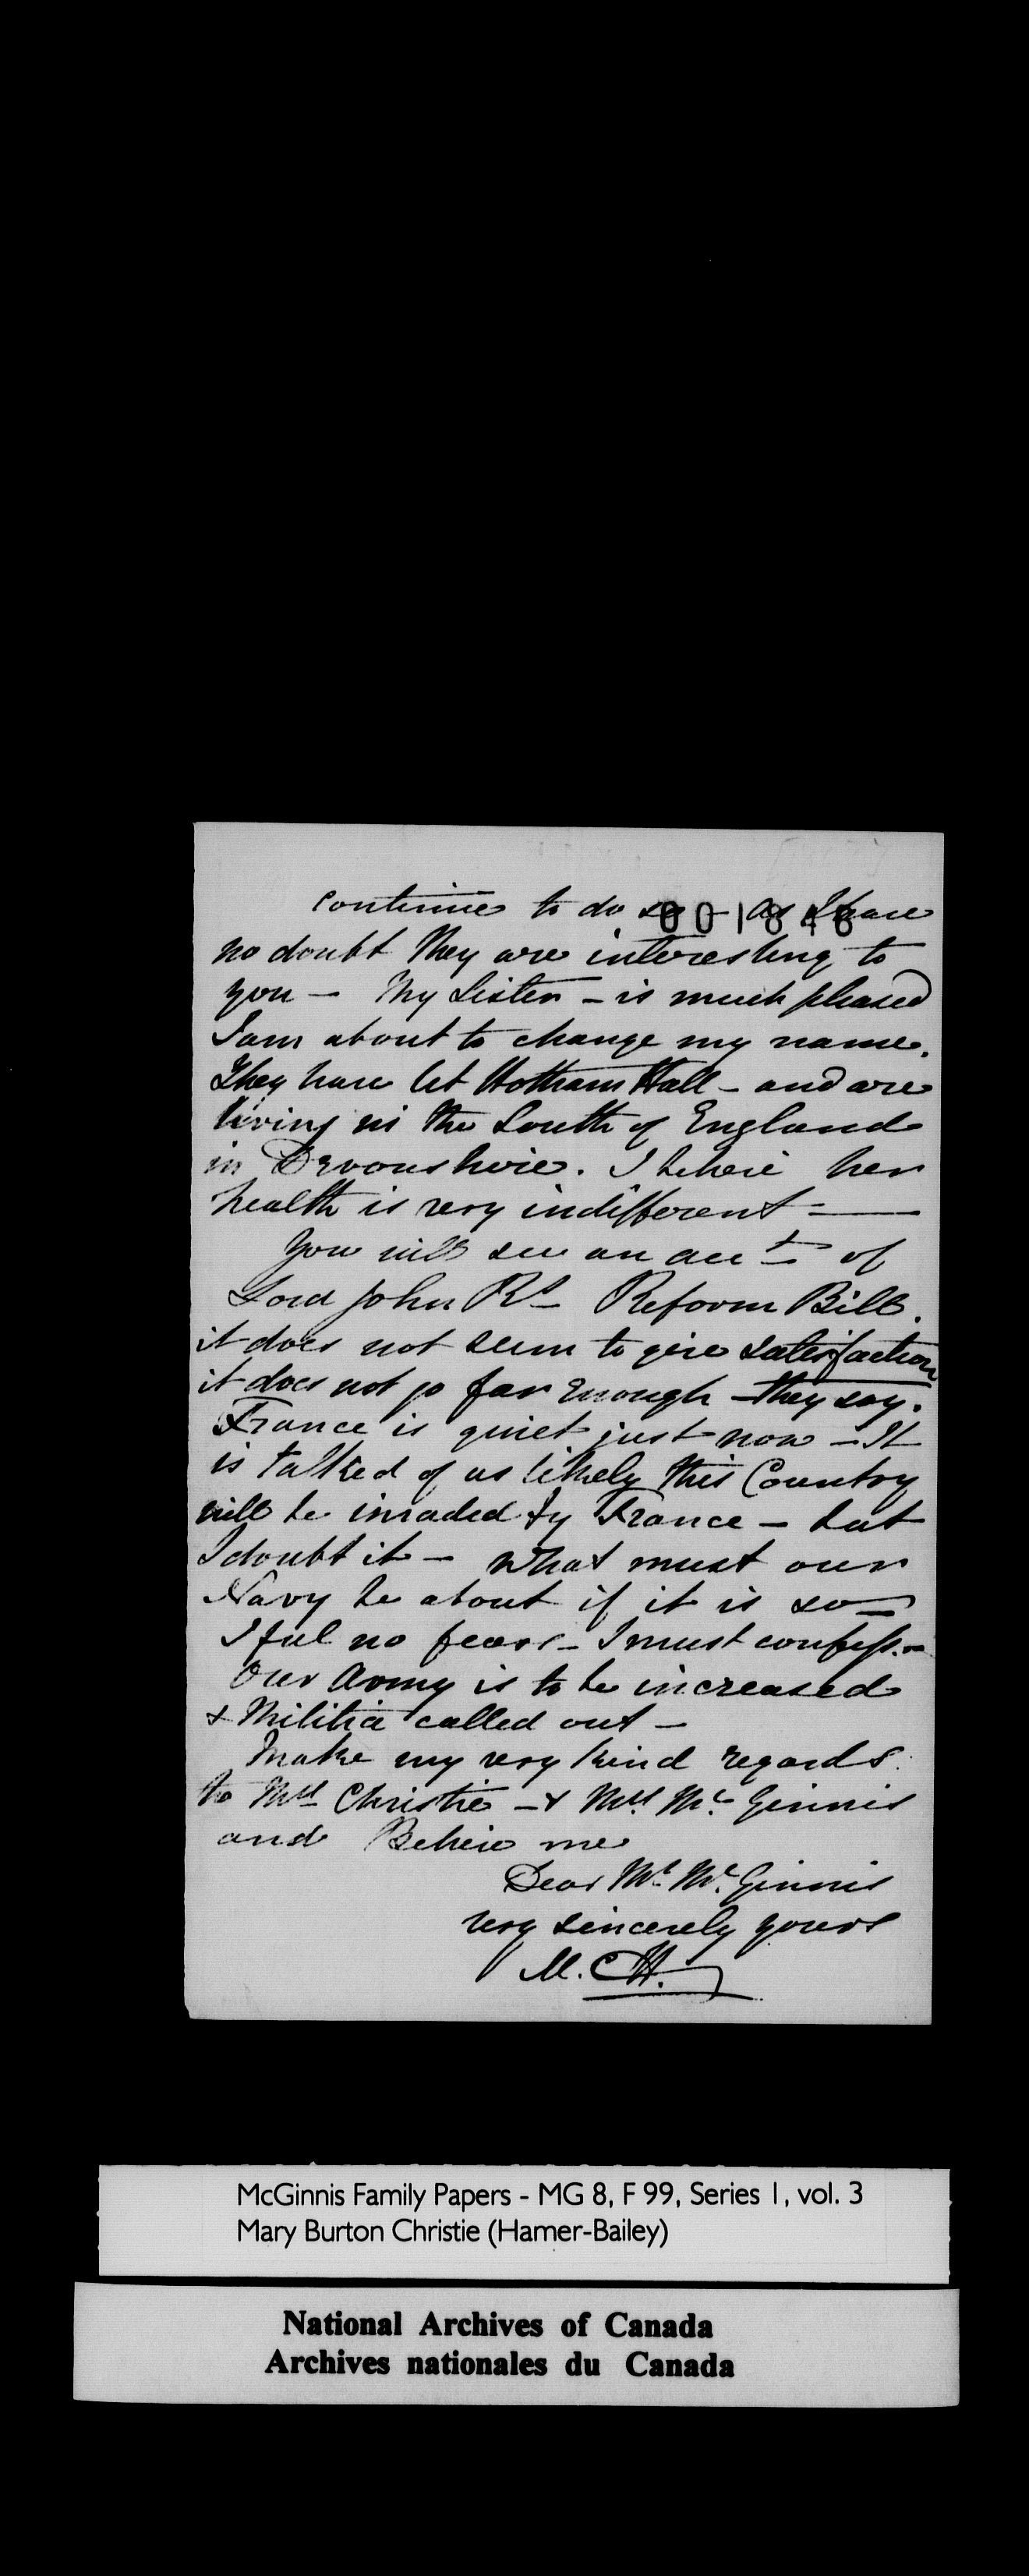 continue to do so - as I have
001848
no doubt they are interesting to
you - My Sister - is much pleased
I am about to change my name.
They have let Hotham Hall - and are
living in the South of England
in Devonshire. I believe her
health is very indifferent -
You will see an acct of
Lord John Rs Reform Bill.
it does not seem to give satisfaction
it does not go far enough - they say.
France is quiet just now - It
is talked of as likely this Country
will be invaded by France - but
I doubt it - what must our
Navy be about if it is so -
I feel no fears - I must confess. -
Our Army is to be increased
& Militia called out -
Make my very kind regards
to Mrs Christie - & Mrs Mc Ginnis
and Believe me
Dear Mr Mc Ginnis
very sincerely yours
M. C H.
McGinnis Family Papers - MG 8, F 99, Series 1, vol. 3
Mary Burton Christie (Hamer-Bailey)
National Archives of Canada
Archives nationales du Canada